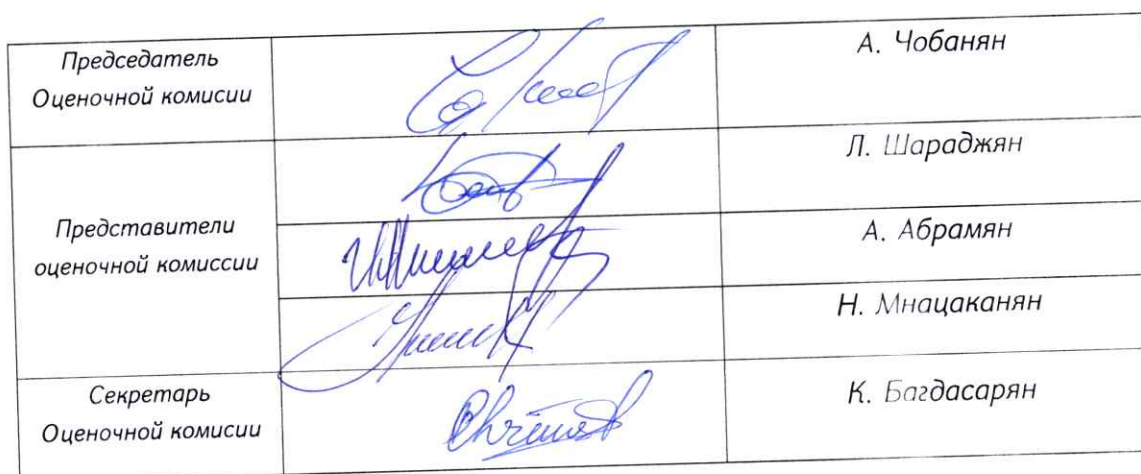 Председатель
Оценочной комисии
А. Чобанян
Представители
оценочной комиссии
Л. Шараджян
А. Абрамян
Н. Мнацаканян
Секретарь
Оценочной комисии
К. Багдасарян